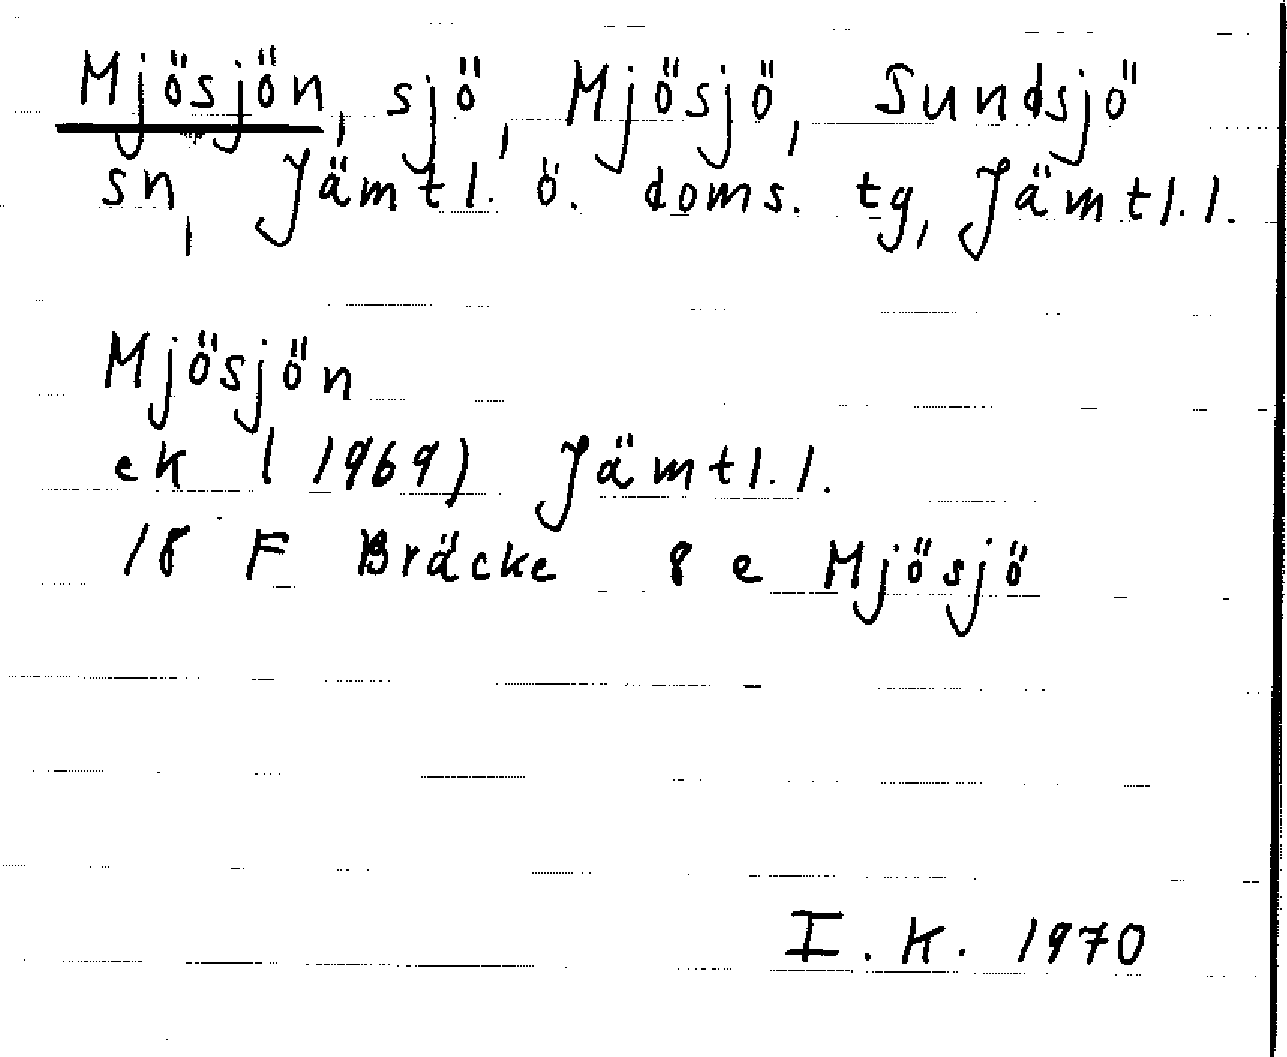 Mjösjön, sjö, Mjösjö, Sundsjö
sn, Jämtl. ö. doms. tg, Jämtl.l.
Mjösjön
ek (1969) Jämtl.l.
18 F Bräcke 8 e Mjösjö
I.K. 1970